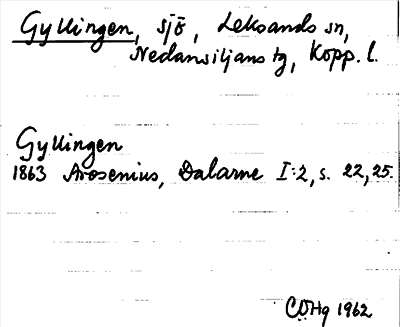 Gyllingen, sjö, Leksands sn,
Nedansiljans tg, Kopp. l.
Gyllingen
1863 Arosenius, Dalarne I:2, s. 22, 25.
CÖHg 1962